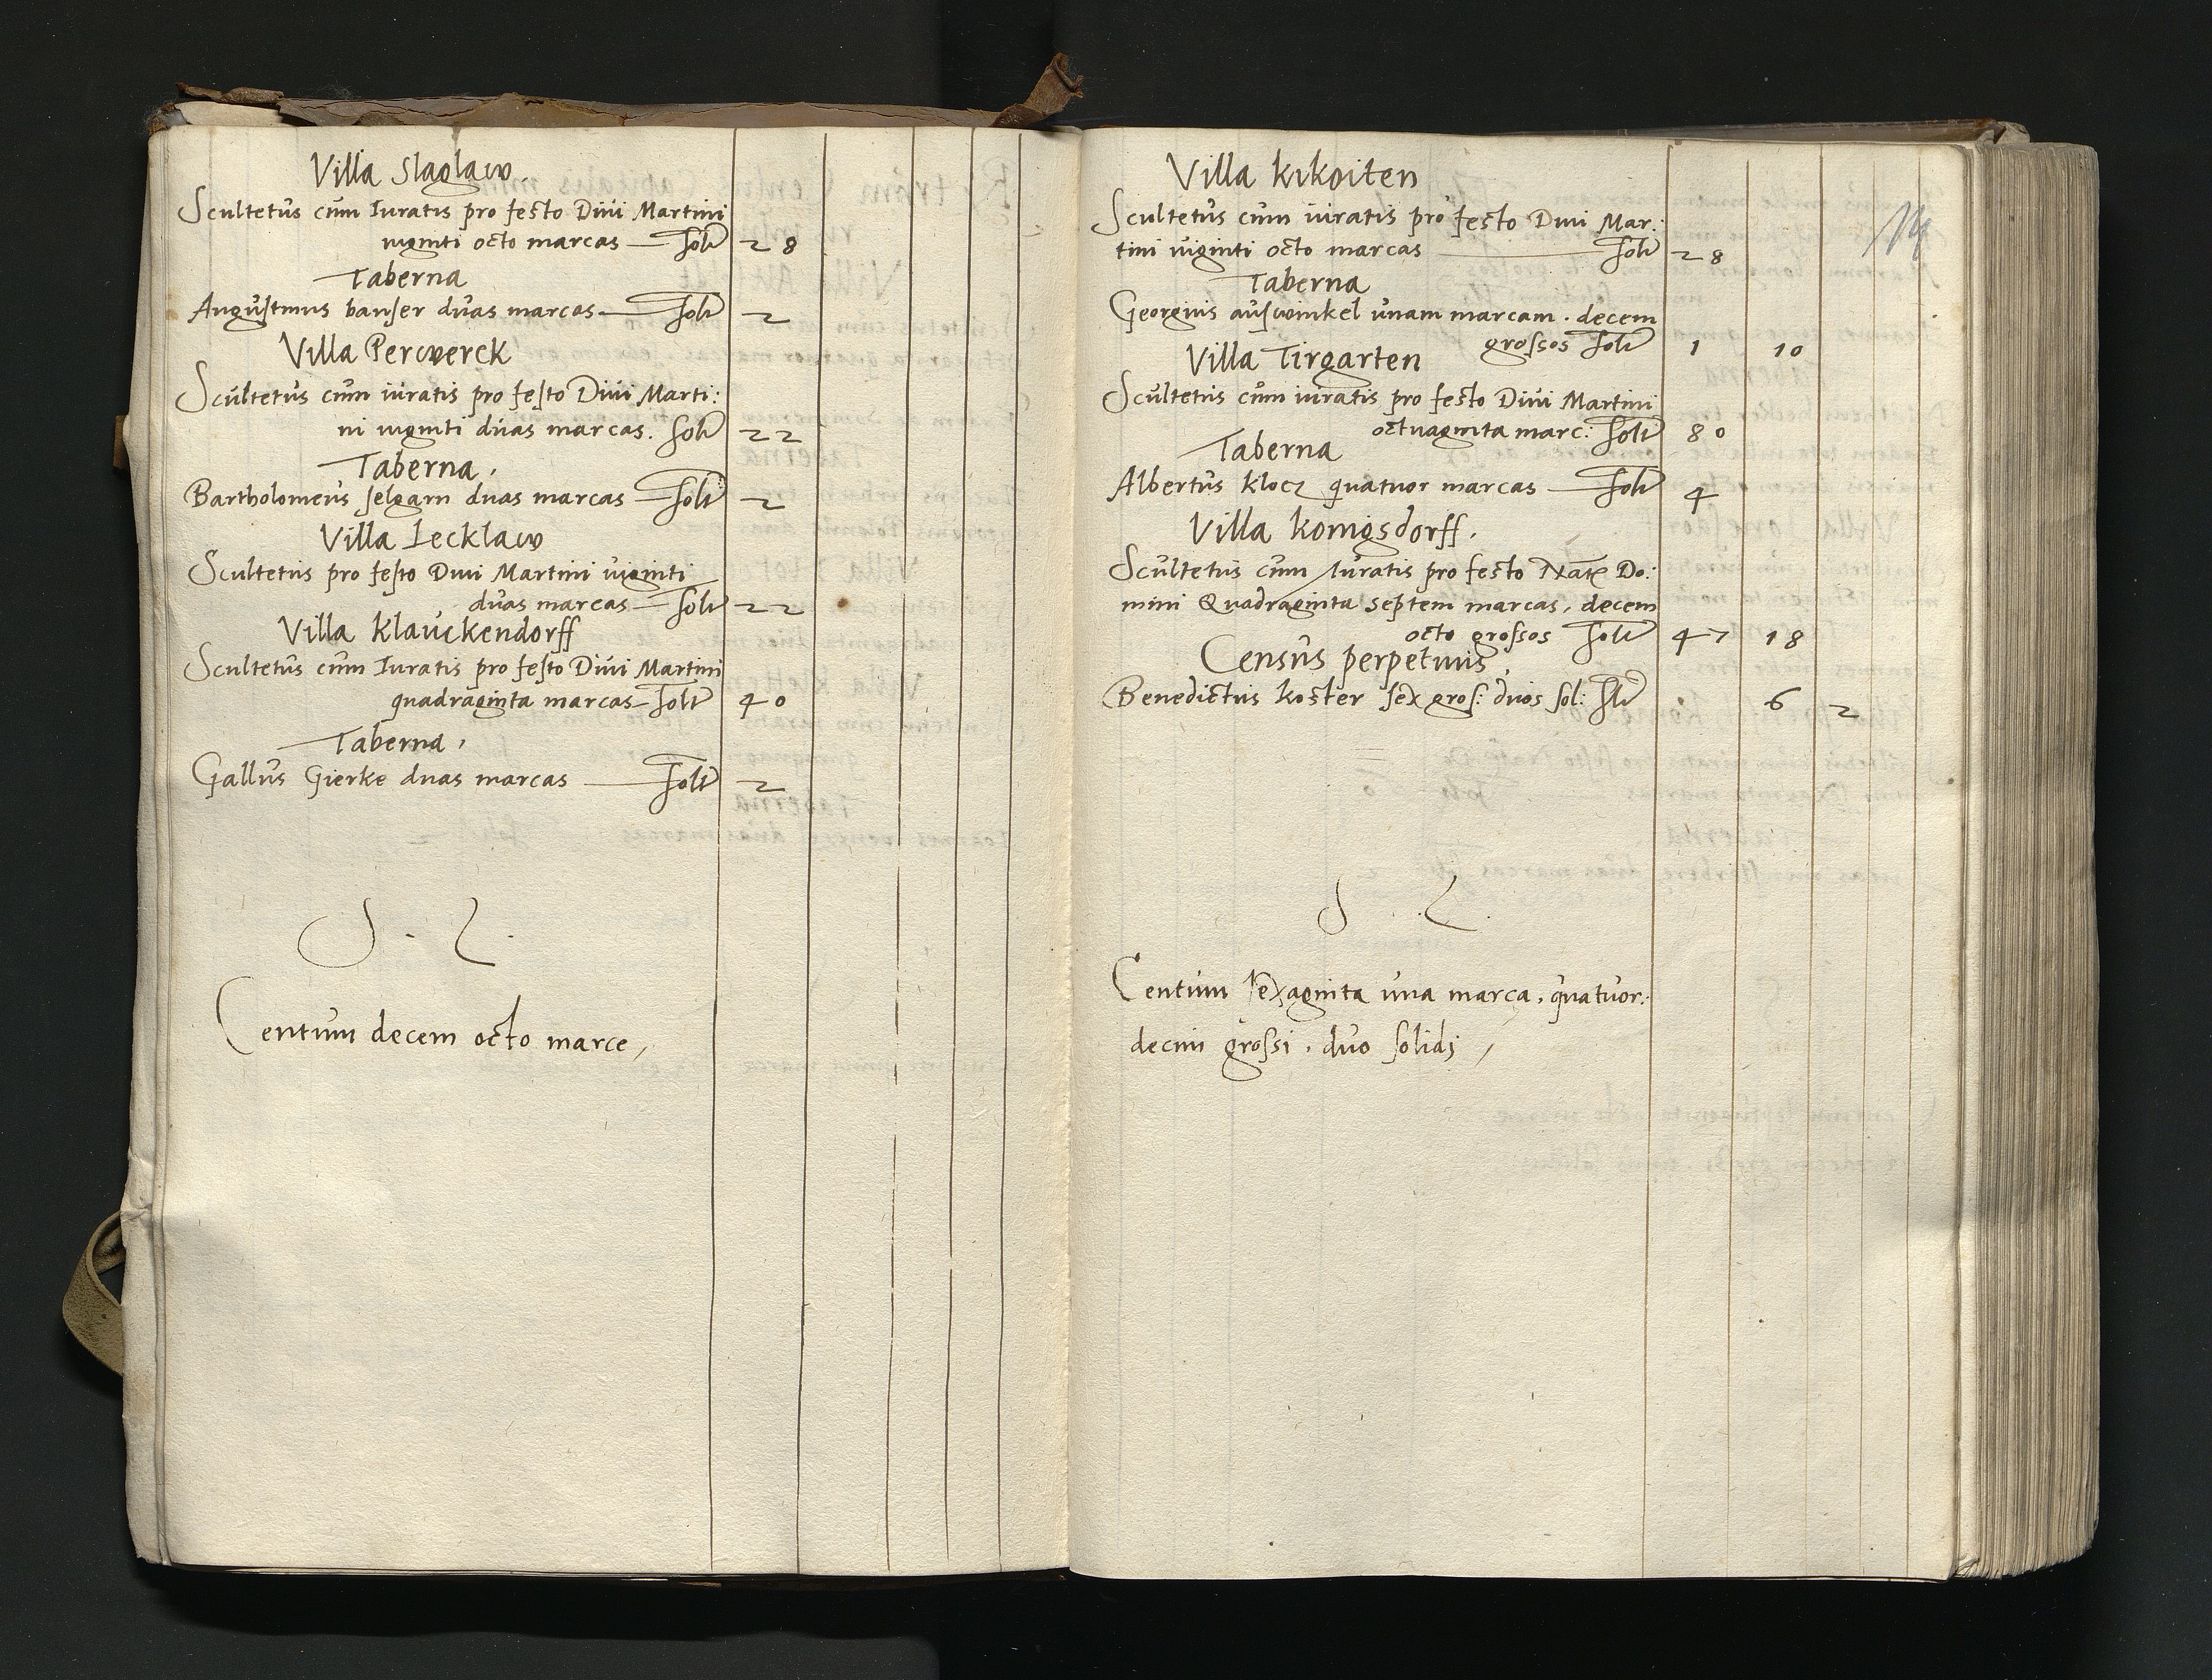 Villa Slaglaw.
Scultetus cum Iuratis pro festo Diui Martini
viginti octo marcas — solt 28
Taberna
Augustinus banser duas marcas — solt 2
Villa Percwerck
Scultetus cum iuratis pro festo Diui Marti:
ni viginti duas marcas. solt 22
Taberna.
Bartholomeus selgarn duas marcas — solt 2
Villa Lecklaw
Scultetus pro festo Diui Martini viginti
duas marcas — solt 22
Villa Klauckendorff
Scultetus cum Iuratis pro festo Diui Martini
quadraginta marcas — solt 40
Taberna,
Gallus Gierke duas marcas — solt 2
S. L.
Centum decem octo marce,
14
Villa Kikoiten
Scultetus cum iuratis pro festo Diui Mar:
tini viginti octo marcas — solt 28
Taberna
Georgius auswinkel unam marcam. decem
grossos solt 1 10
Villa Tirgarten
Scultetus cum iuratis pro festo Diui Martini
octuaginta marc: solt 80
Taberna
Albertus Klocz quatuor marcas — solt 4
Villa Konigsdorff.
Scultetus cum Iuratis pro festo Nat Do:
mini Quadraginta septem marcas, decem
octo grossos solt 47 18
Census perpetuus,
Benedictus Koster sex gros: duos sol: slt 6 2
S. L.
Centum sexaginta una marca, quatuor:
decim grossi. duo solidj,